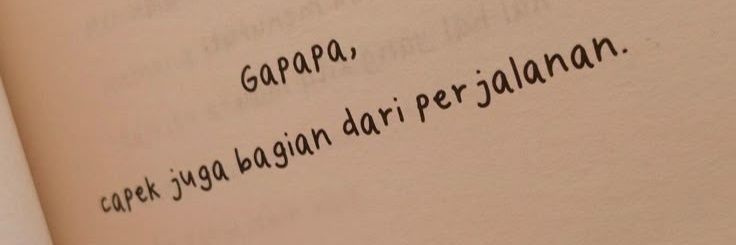 Gapapa,
capek juga bagian dari perjalanan.